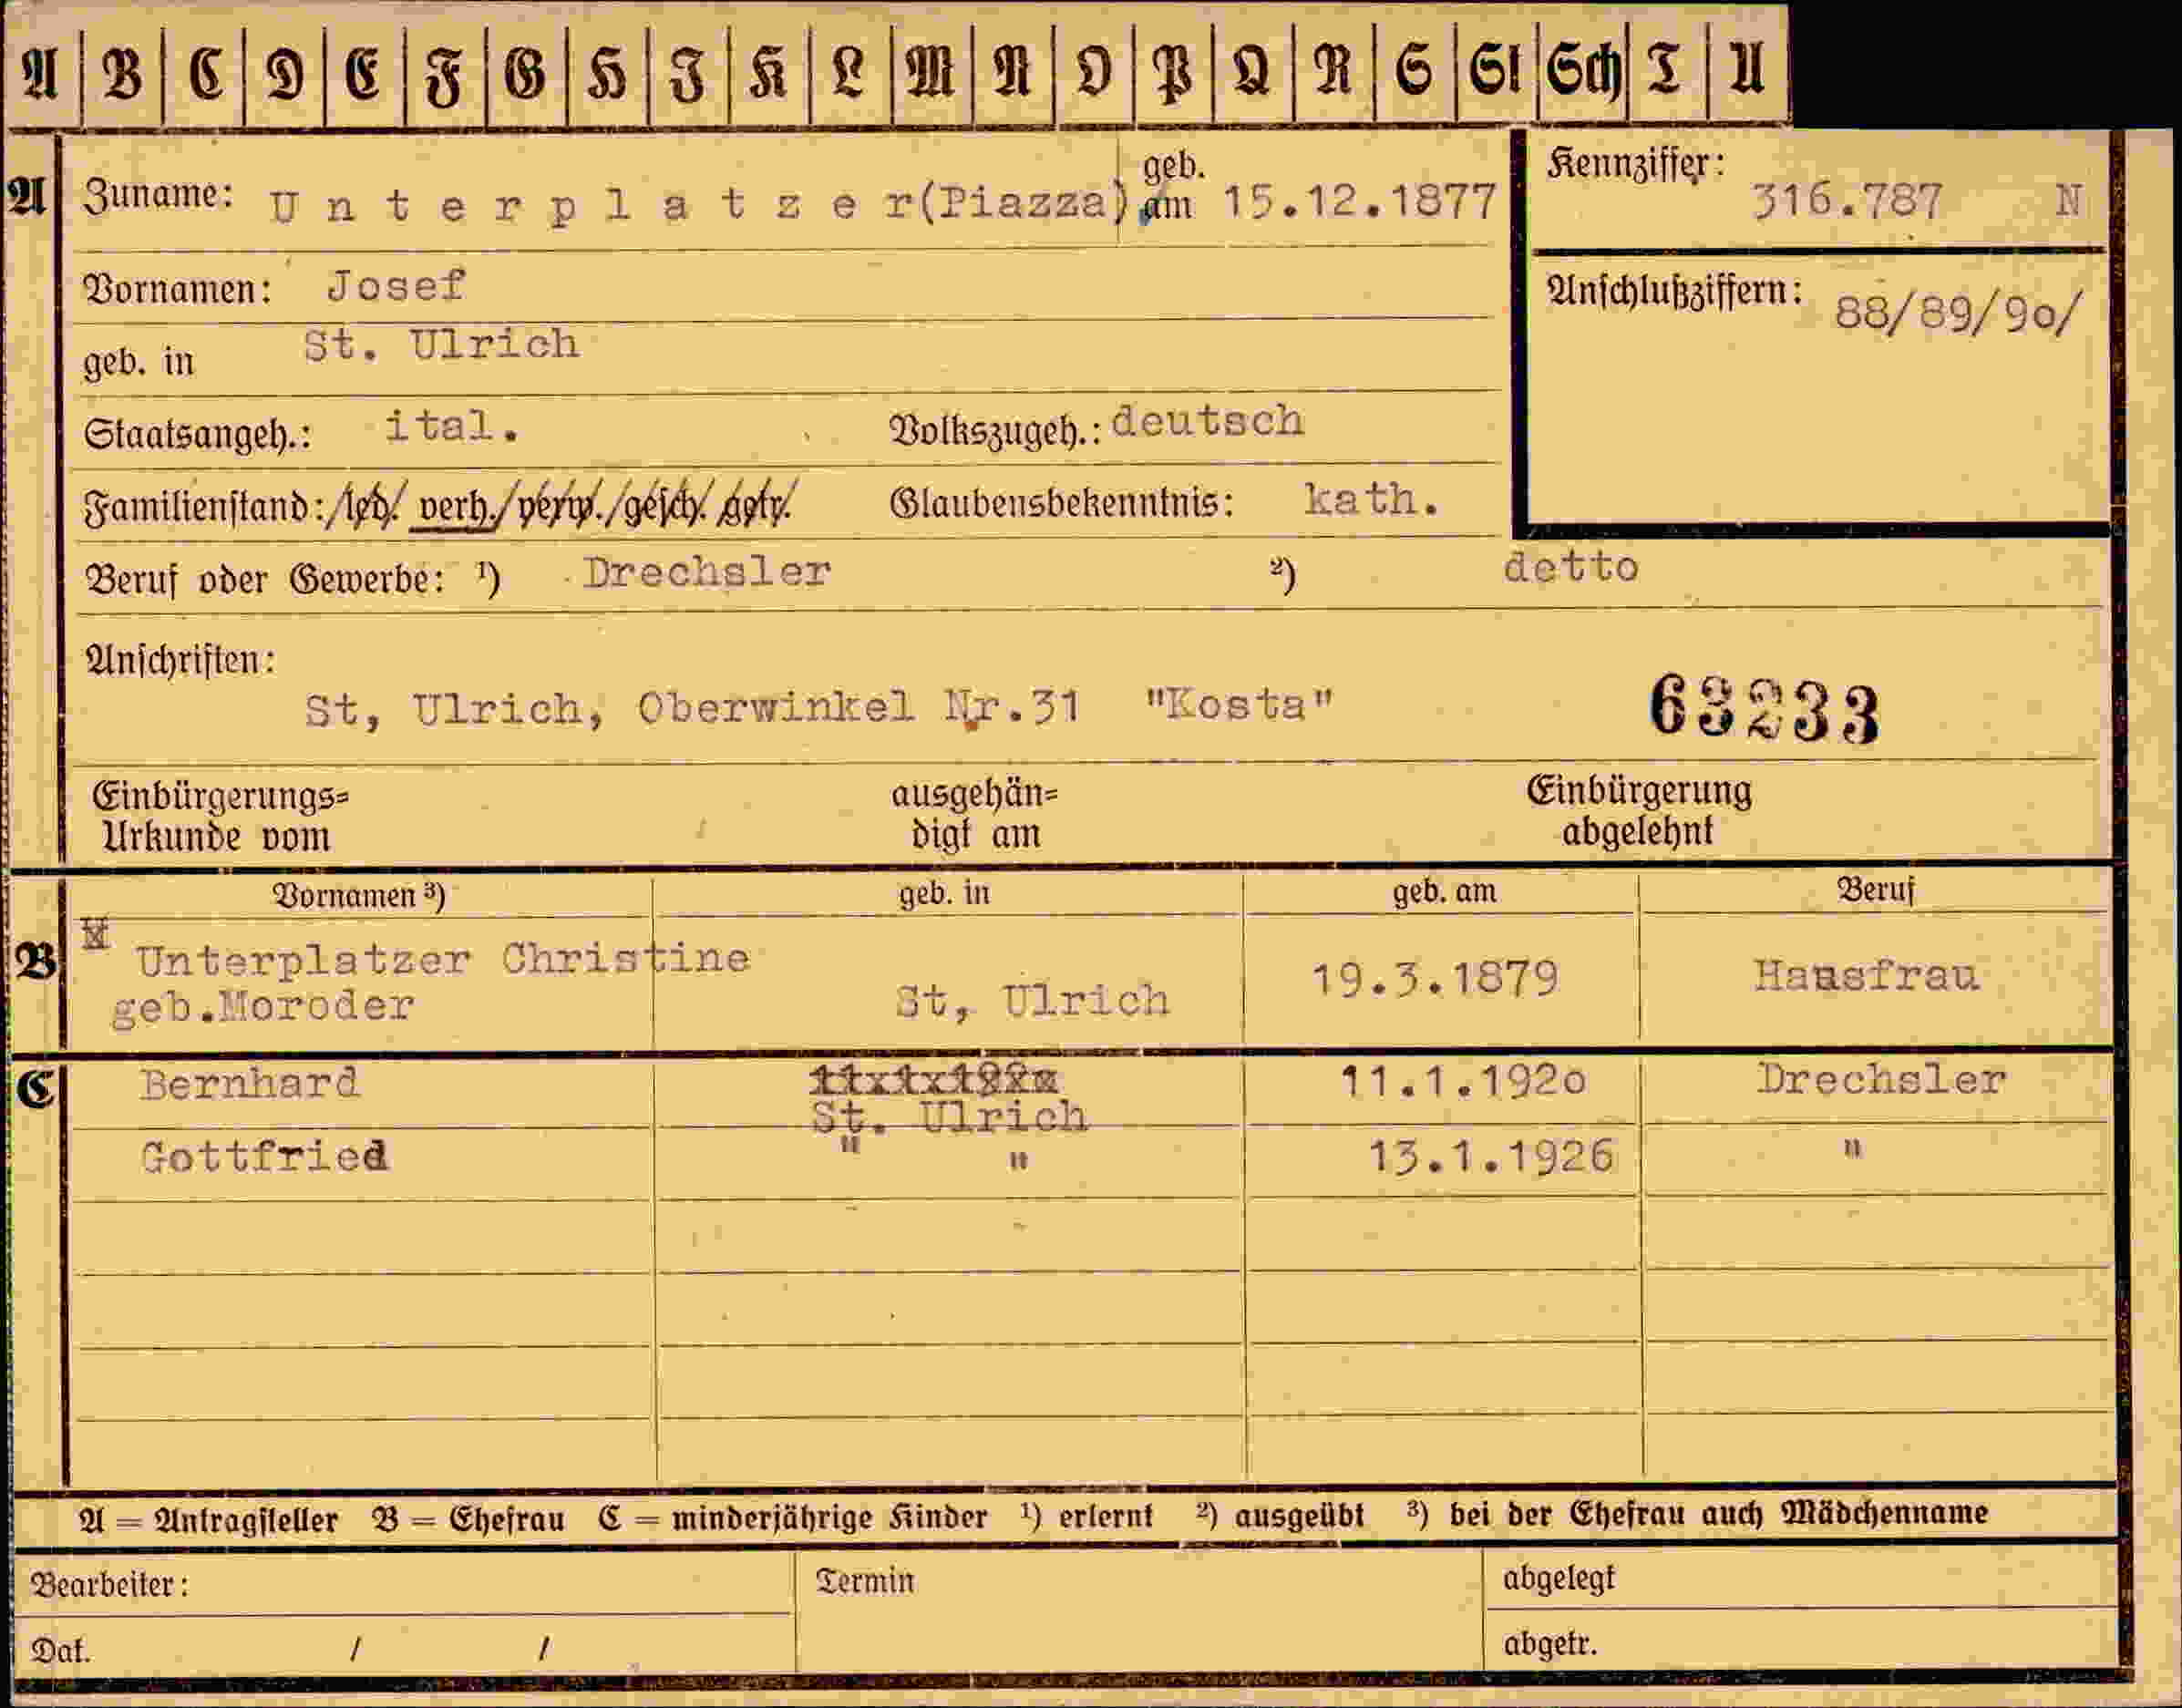 A B C D E F G H J K L M N O P Q R S St Sch T U
A Zuname: Unterplatzer(Piazza) geb. am 15.12.1877 Kennziffer: 316.787 N
Vornamen: Josef Anschlußziffern: 88/89/9o/
geb. in St. Ulrich
Staatsangeh.: ital. Volkszugeh.: deutsch
Familienstand: /led./ verh./verw./gesch./getr. Glaubensbekenntnis: kath.
Beruf oder Gewerbe: ¹) Drechsler ²) detto
Anschriften:
St, Ulrich, Oberwinkel Nr.31 "Kosta" 63233
Einbürgerungs= ausgehän= Einbürgerung
Urkunde vom digt am abgelehnt
Vornamen ³) geb. in geb. am Beruf
B Unterplatzer Christine 19.3.1879 Hausfrau
geb.Moroder St, Ulrich
C Bernhard 11.1.192o Drechsler
St. Ulrich
Gottfried " " 13.1.1926 "
A = Antragsteller B = Ehefrau C = minderjährige Kinder ¹) erlernt ²) ausgeübt ³) bei der Ehefrau auch Mädchenname
Bearbeiter: Termin abgelegt
Dat. / / abgetr.